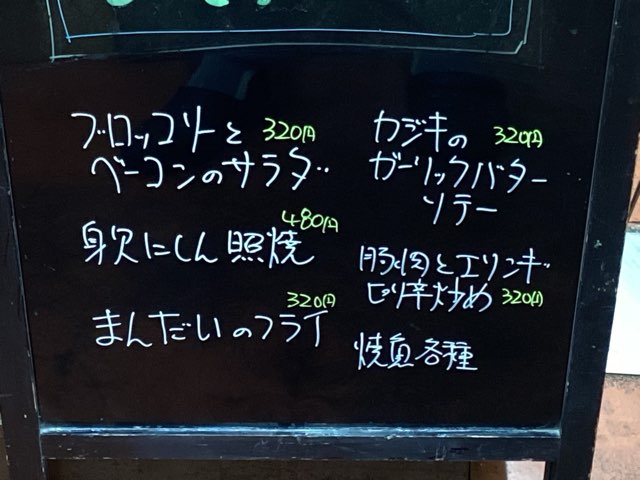 ブロッコリーと 320円
ベーコンのサラダ
身欠にしん照焼 480円
まんだいのフライ 320円
カジキの 320円
ガーリックバター
ソテー
豚肉とエリンギ
ピリ辛炒め 320円
焼魚各種